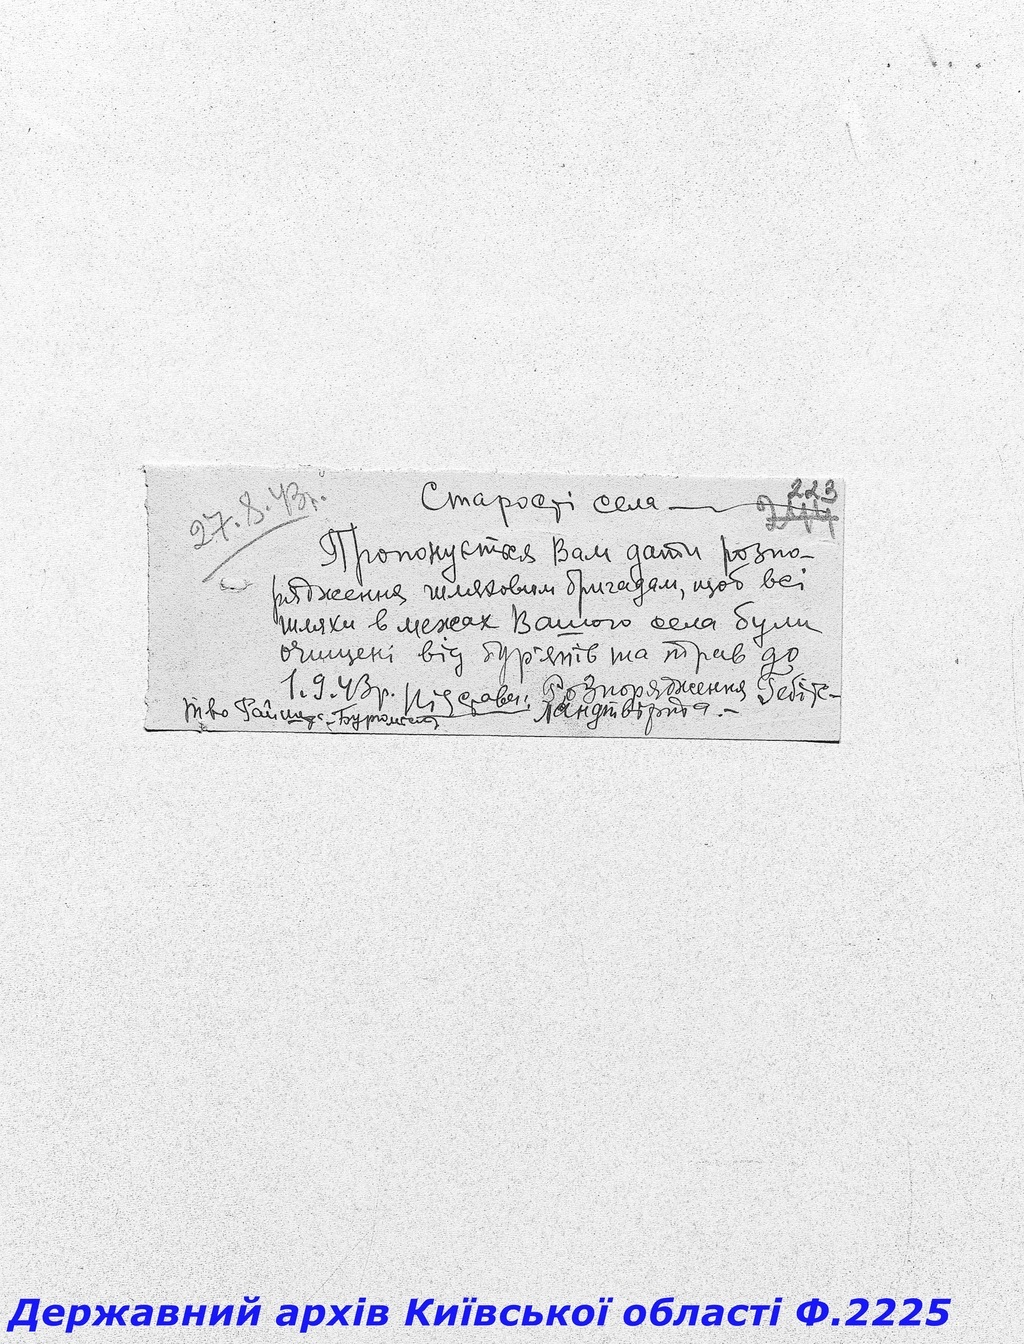 27.8.43г.
Старості села —
223
244
Пропонується Вам дати розпо-
рядження шляховим бригадам, щоб всі
шляхи в межах Вашого села були
очищені від бур'янів та трав до
1.9.43р. Підстава: Розпорядження Гебітс-
ландвірта.-
Державний архів Київської області Ф.2225